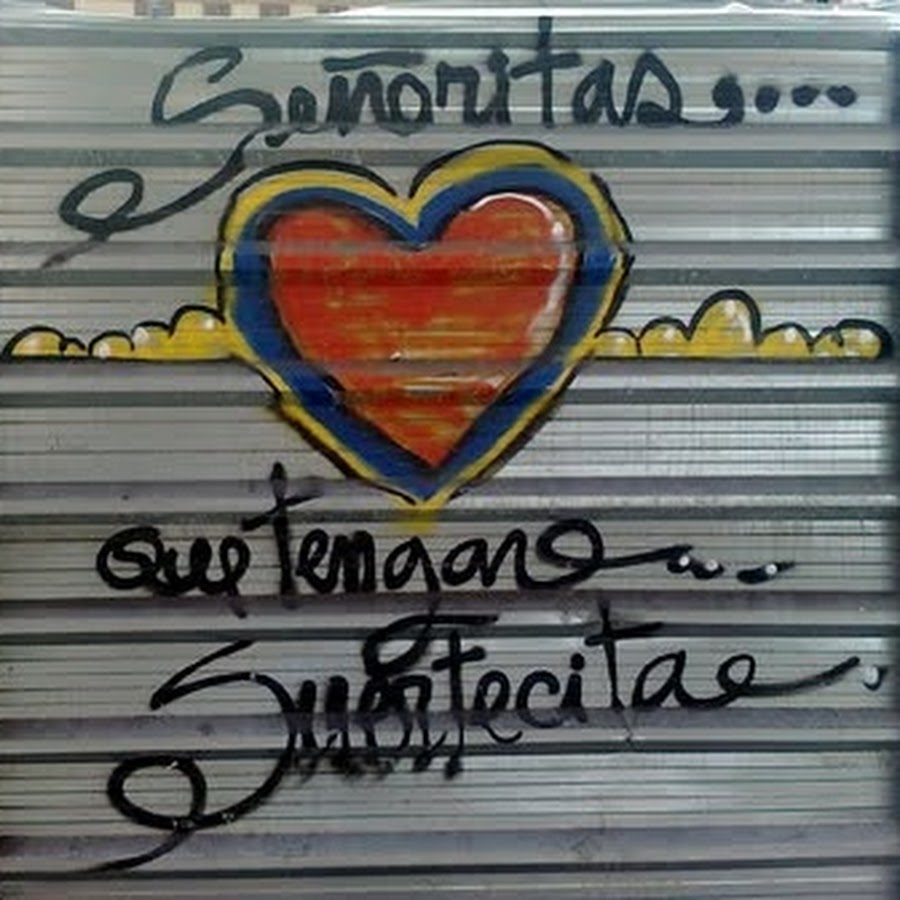 Señoritas....
que tengan...
Suertecita